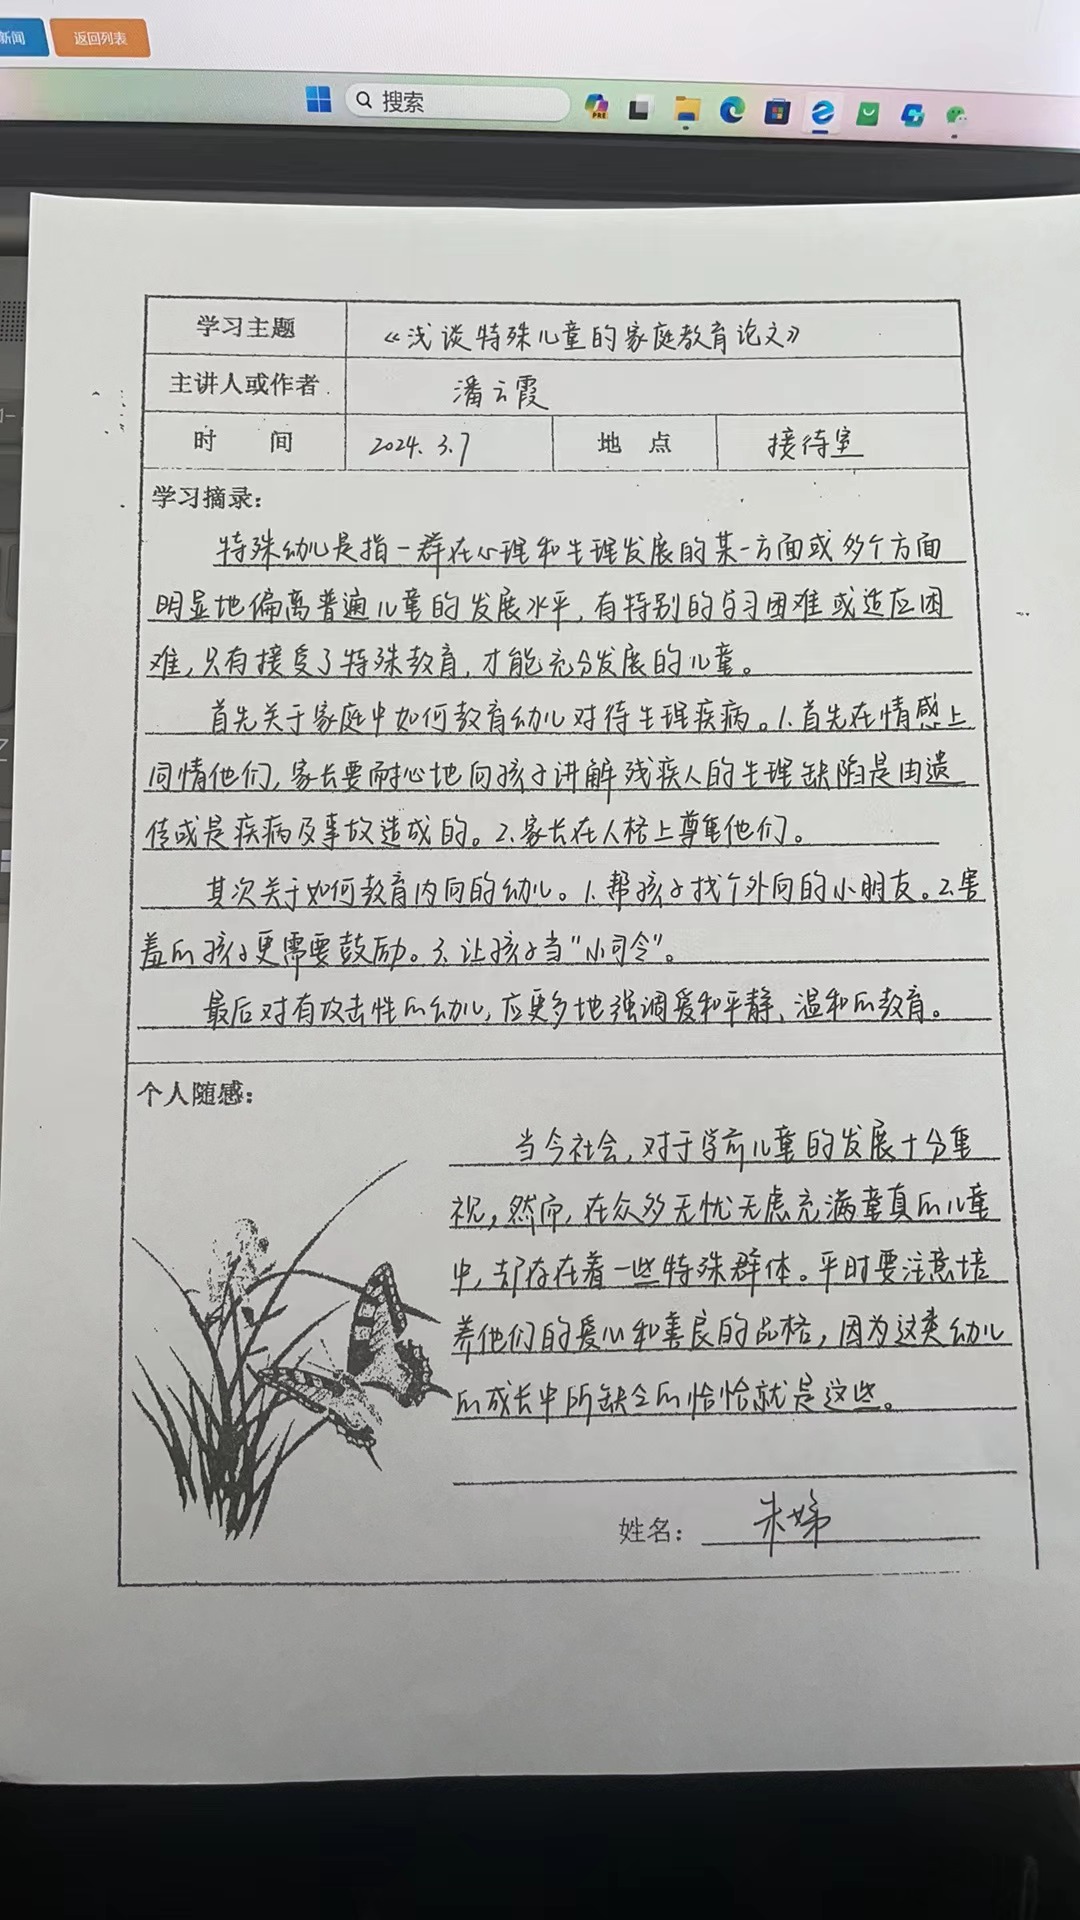 新闻
返回列表
搜索
PRE
学习主题 《浅谈特殊儿童的家庭教育论文》
主讲人或作者 潘云霞
时 间 2024.3.7 地 点 接待室
学习摘录：
特殊幼儿是指一群在心理和生理发展的某一方面或多个方面
明显地偏离普遍儿童的发展水平，有特别的学习困难或适应困
难，只有接受了特殊教育，才能充分发展的儿童。
首先关于家庭中如何教育幼儿对待生理疾病。1.首先在情感上
同情他们，家长要耐心地向孩子讲解残疾人的生理缺陷是由遗
传或是疾病及事故造成的。2.家长在人格上尊重他们。
其次关于如何教育内向的幼儿。1.帮孩子找个外向的小朋友。2.害
羞的孩子更需要鼓励。3.让孩子当“小司令”。
最后对有攻击性的幼儿，应更多地强调爱和平静、温和的教育。
个人随感：
当今社会，对于学前儿童的发展十分重
视，然而，在众多无忧无虑充满童真的儿童
中，却存在着一些特殊群体。平时要注意培
养他们的爱心和善良的品格，因为这类幼儿
的成长中所缺乏的恰恰就是这些。
姓名： 朱娣